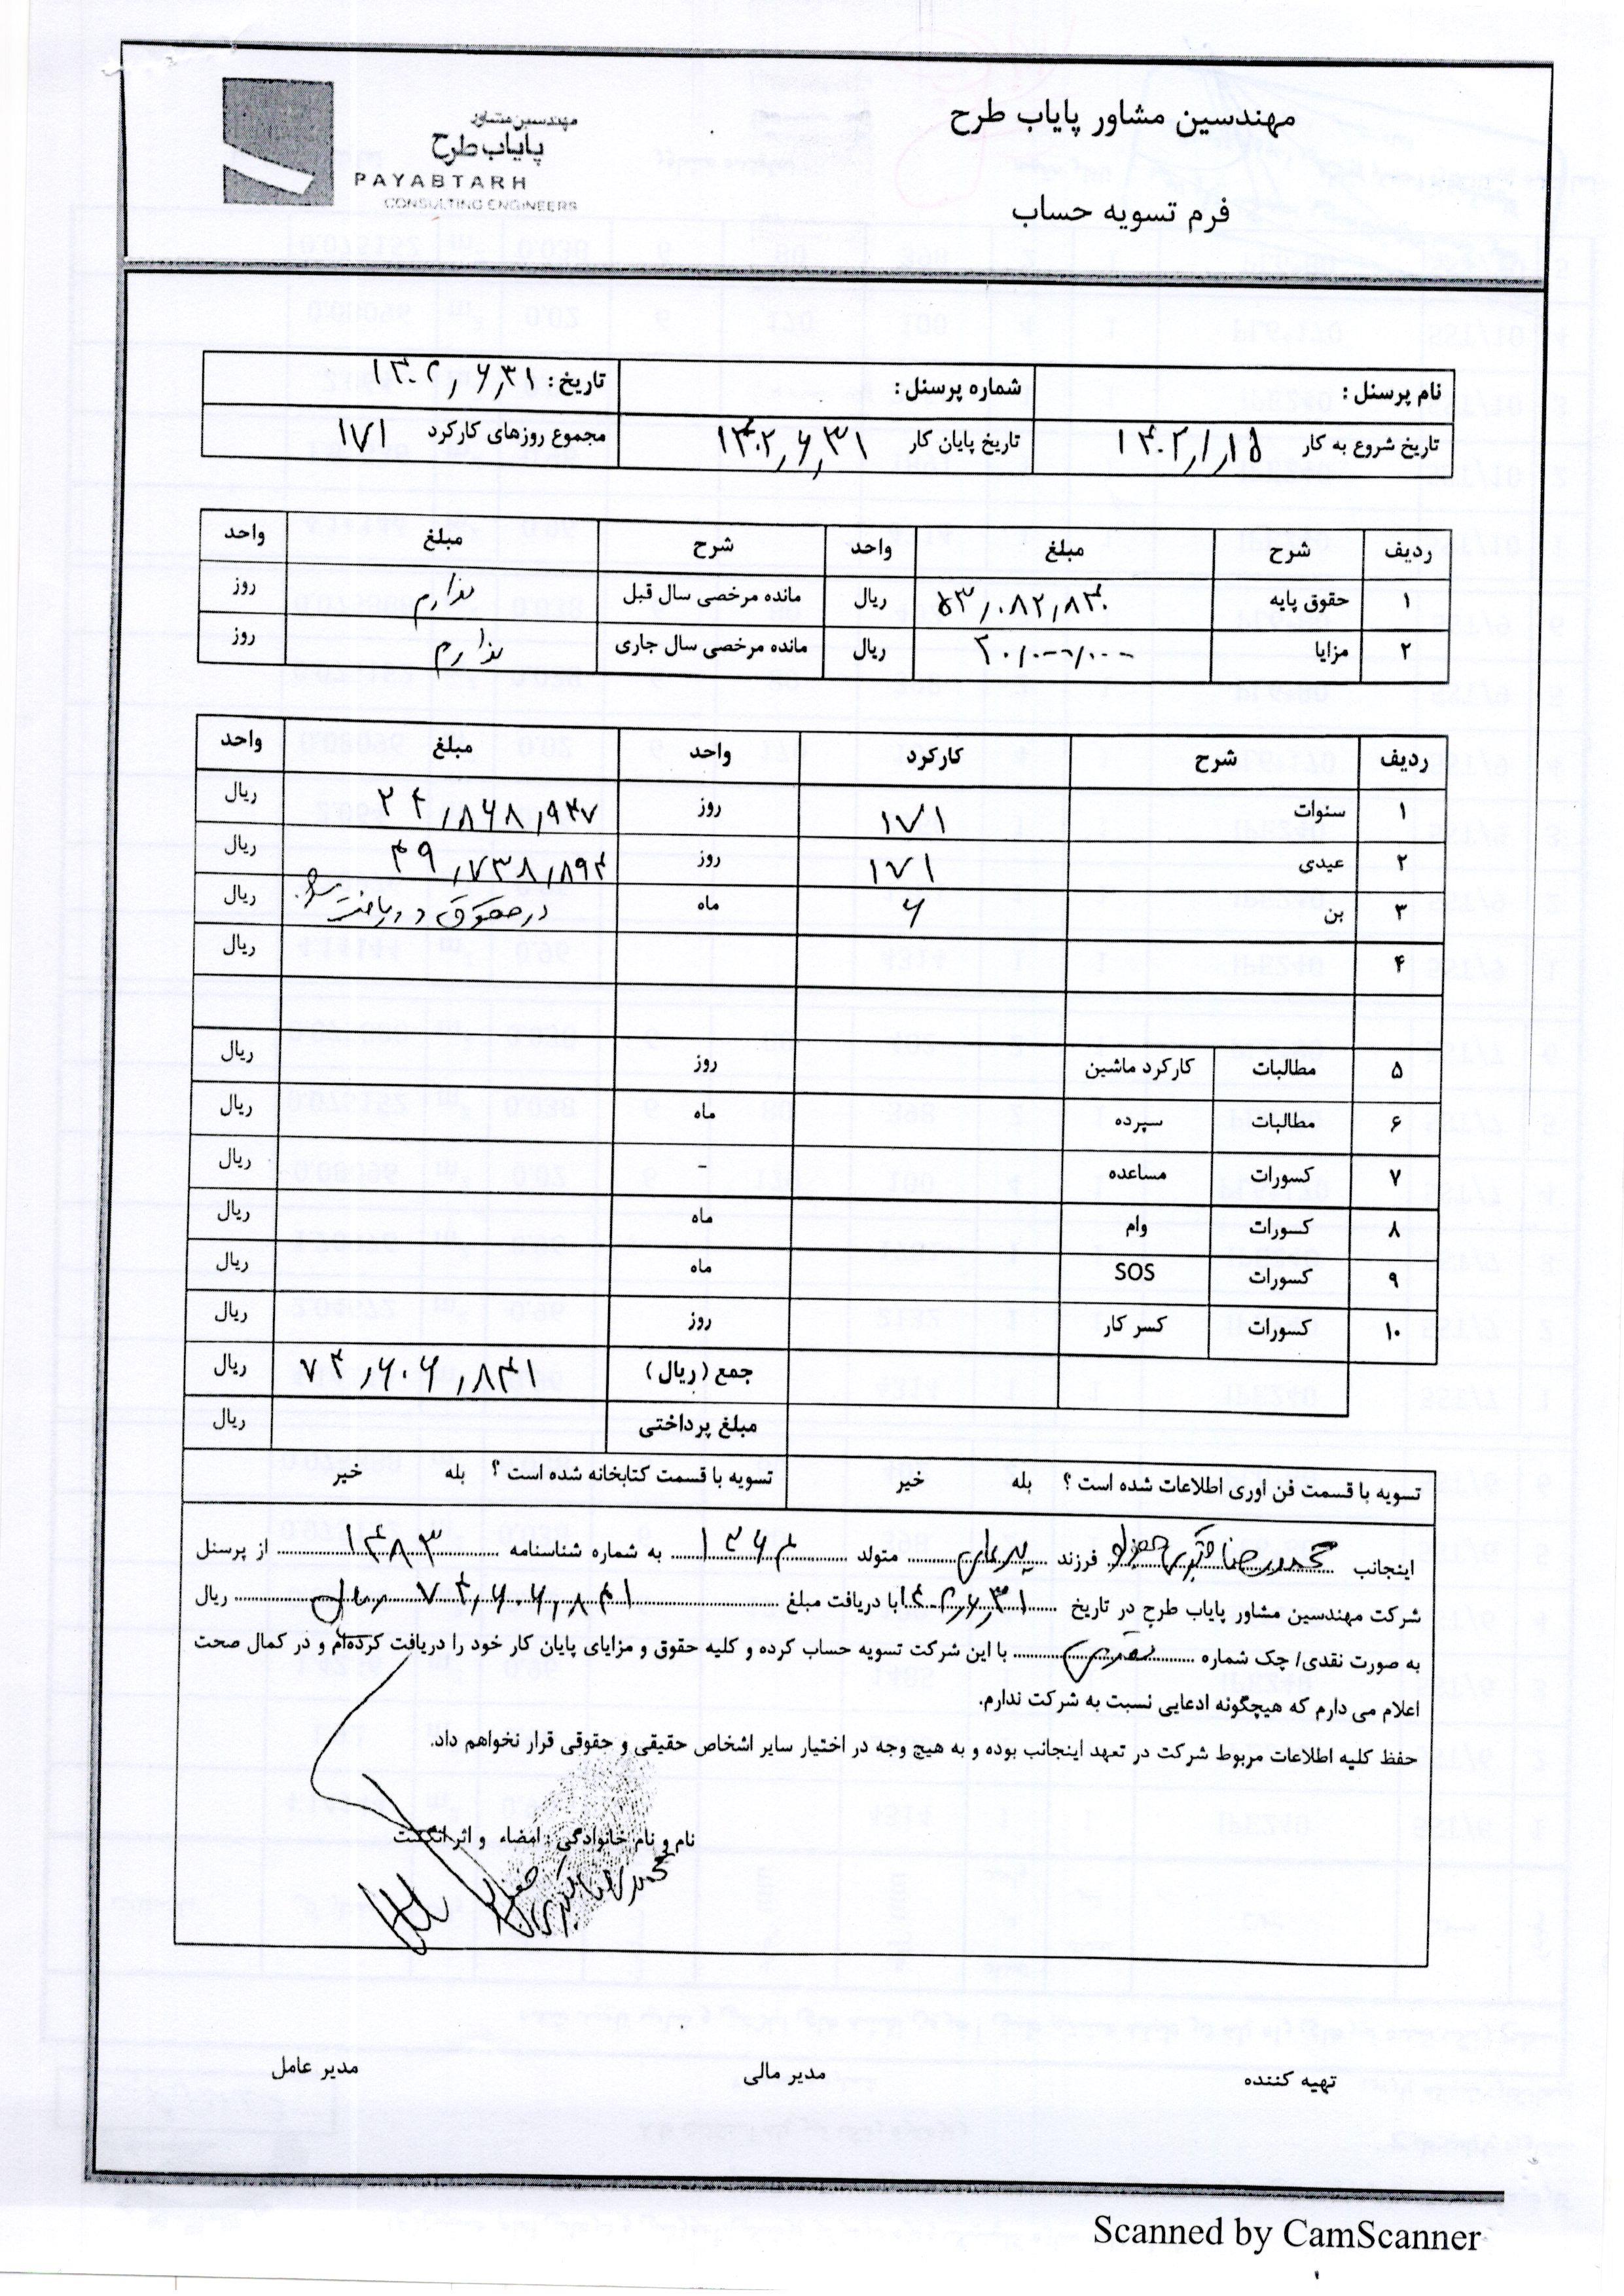 مهندسین مشاور پایاب طرح
فرم تسویه حساب
مهندسین مشاور
پایاب طرح
PAYABTARH
CONSULTING ENGINEERS
نام پرسنل : شماره پرسنل : تاریخ : ۱۴۰۲٫۶٫۳۱
تاریخ شروع به کار ۱۴۰۲٫۱٫۱۵ تاریخ پایان کار ۱۴۰۲٫۶٫۳۱ مجموع روزهای کارکرد ۱۷۱
ردیف شرح مبلغ واحد شرح مبلغ واحد
۱ حقوق پایه ۵۳٫۰۸۲٫۸۴۰ ریال مانده مرخصی سال قبل ندارم روز
۲ مزایا ۲۰٫۰۰۰٫۰۰۰ ریال مانده مرخصی سال جاری ندارم روز
ردیف شرح کارکرد واحد مبلغ واحد
۱ سنوات ۱۷۱ روز ۲۴٫۸۶۸٫۹۴۷ ریال
۲ عیدی ۱۷۱ روز ۴۹٫۷۳۸٫۸۹۴ ریال
۳ بن ۶ ماه در حقوق دریافت شد. ریال
۴ ریال
۵ مطالبات کارکرد ماشین روز ریال
۶ مطالبات سپرده ماه ریال
۷ کسورات مساعده - ریال
۸ کسورات وام ماه ریال
۹ کسورات SOS ماه ریال
۱۰ کسورات کسر کار روز ریال
جمع (ریال) ۷۴٫۶۰۶٫۸۴۱ ریال
مبلغ پرداختی ریال
تسویه با قسمت فن اوری اطلاعات شده است ؟ بله خیر تسویه با قسمت کتابخانه شده است ؟ بله خیر
اینجانب محمدرضا فرزند متولد ۱۳۶۴ به شماره شناسنامه ۱۴۸۳ از پرسنل
شرکت مهندسین مشاور پایاب طرح در تاریخ ۱۴۰۲٫۶٫۳۱ با دریافت مبلغ ۷۴٫۶۰۶٫۸۴۱ ریال ریال
به صورت نقدی/ چک شماره با این شرکت تسویه حساب کرده و کلیه حقوق و مزایای پایان کار خود را دریافت کرده‌ام و در کمال صحت
اعلام می دارم که هیچگونه ادعایی نسبت به شرکت ندارم.
حفظ کلیه اطلاعات مربوط شرکت در تعهد اینجانب بوده و به هیچ وجه در اختیار سایر اشخاص حقیقی و حقوقی قرار نخواهم داد.
نام و نام خانوادگی : امضاء و اثر انگشت
محمدرضا
تهیه کننده مدیر مالی مدیر عامل
Scanned by CamScanner